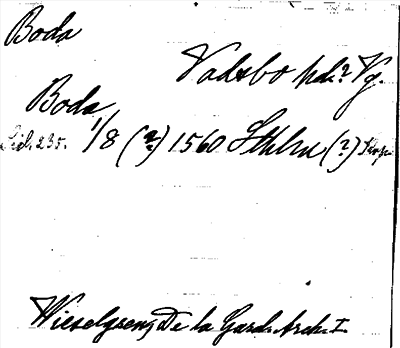 Boda
Vadsbo hd.? Vg.
Boda
Sid. 235. 1/8 (?) 1560 Sthlm (?)
Wieselgren, De la Gard. Arch. I.